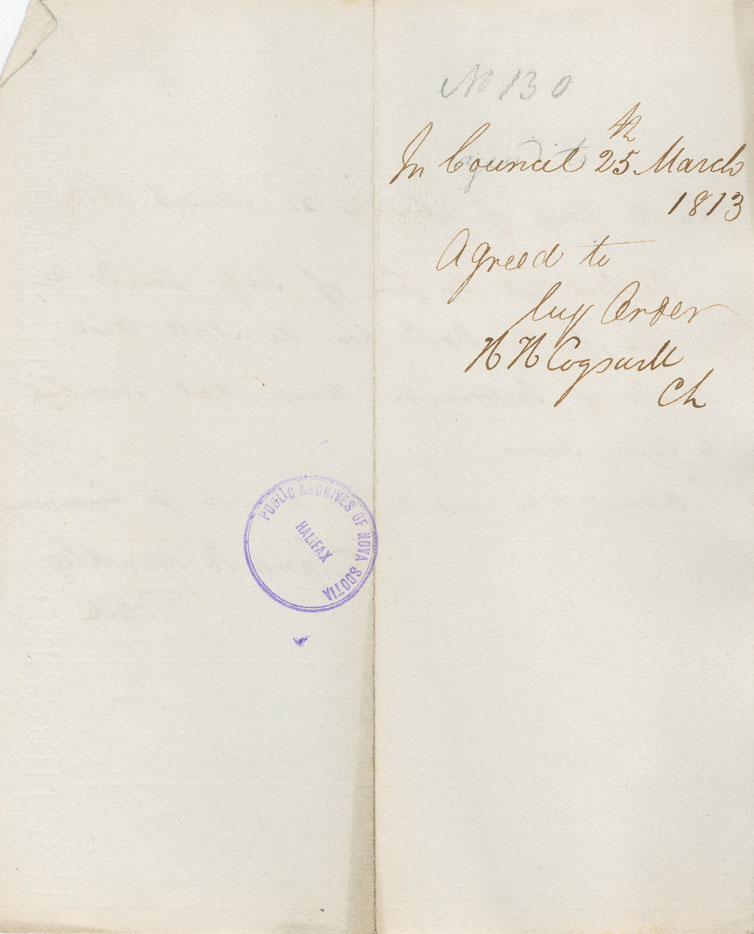 No 130
In Council 25th March
1813
Agreed to
by Order
H H Cogswell
Ck
PUBLIC ARCHIVES OF NOVA SCOTIA
HALIFAX